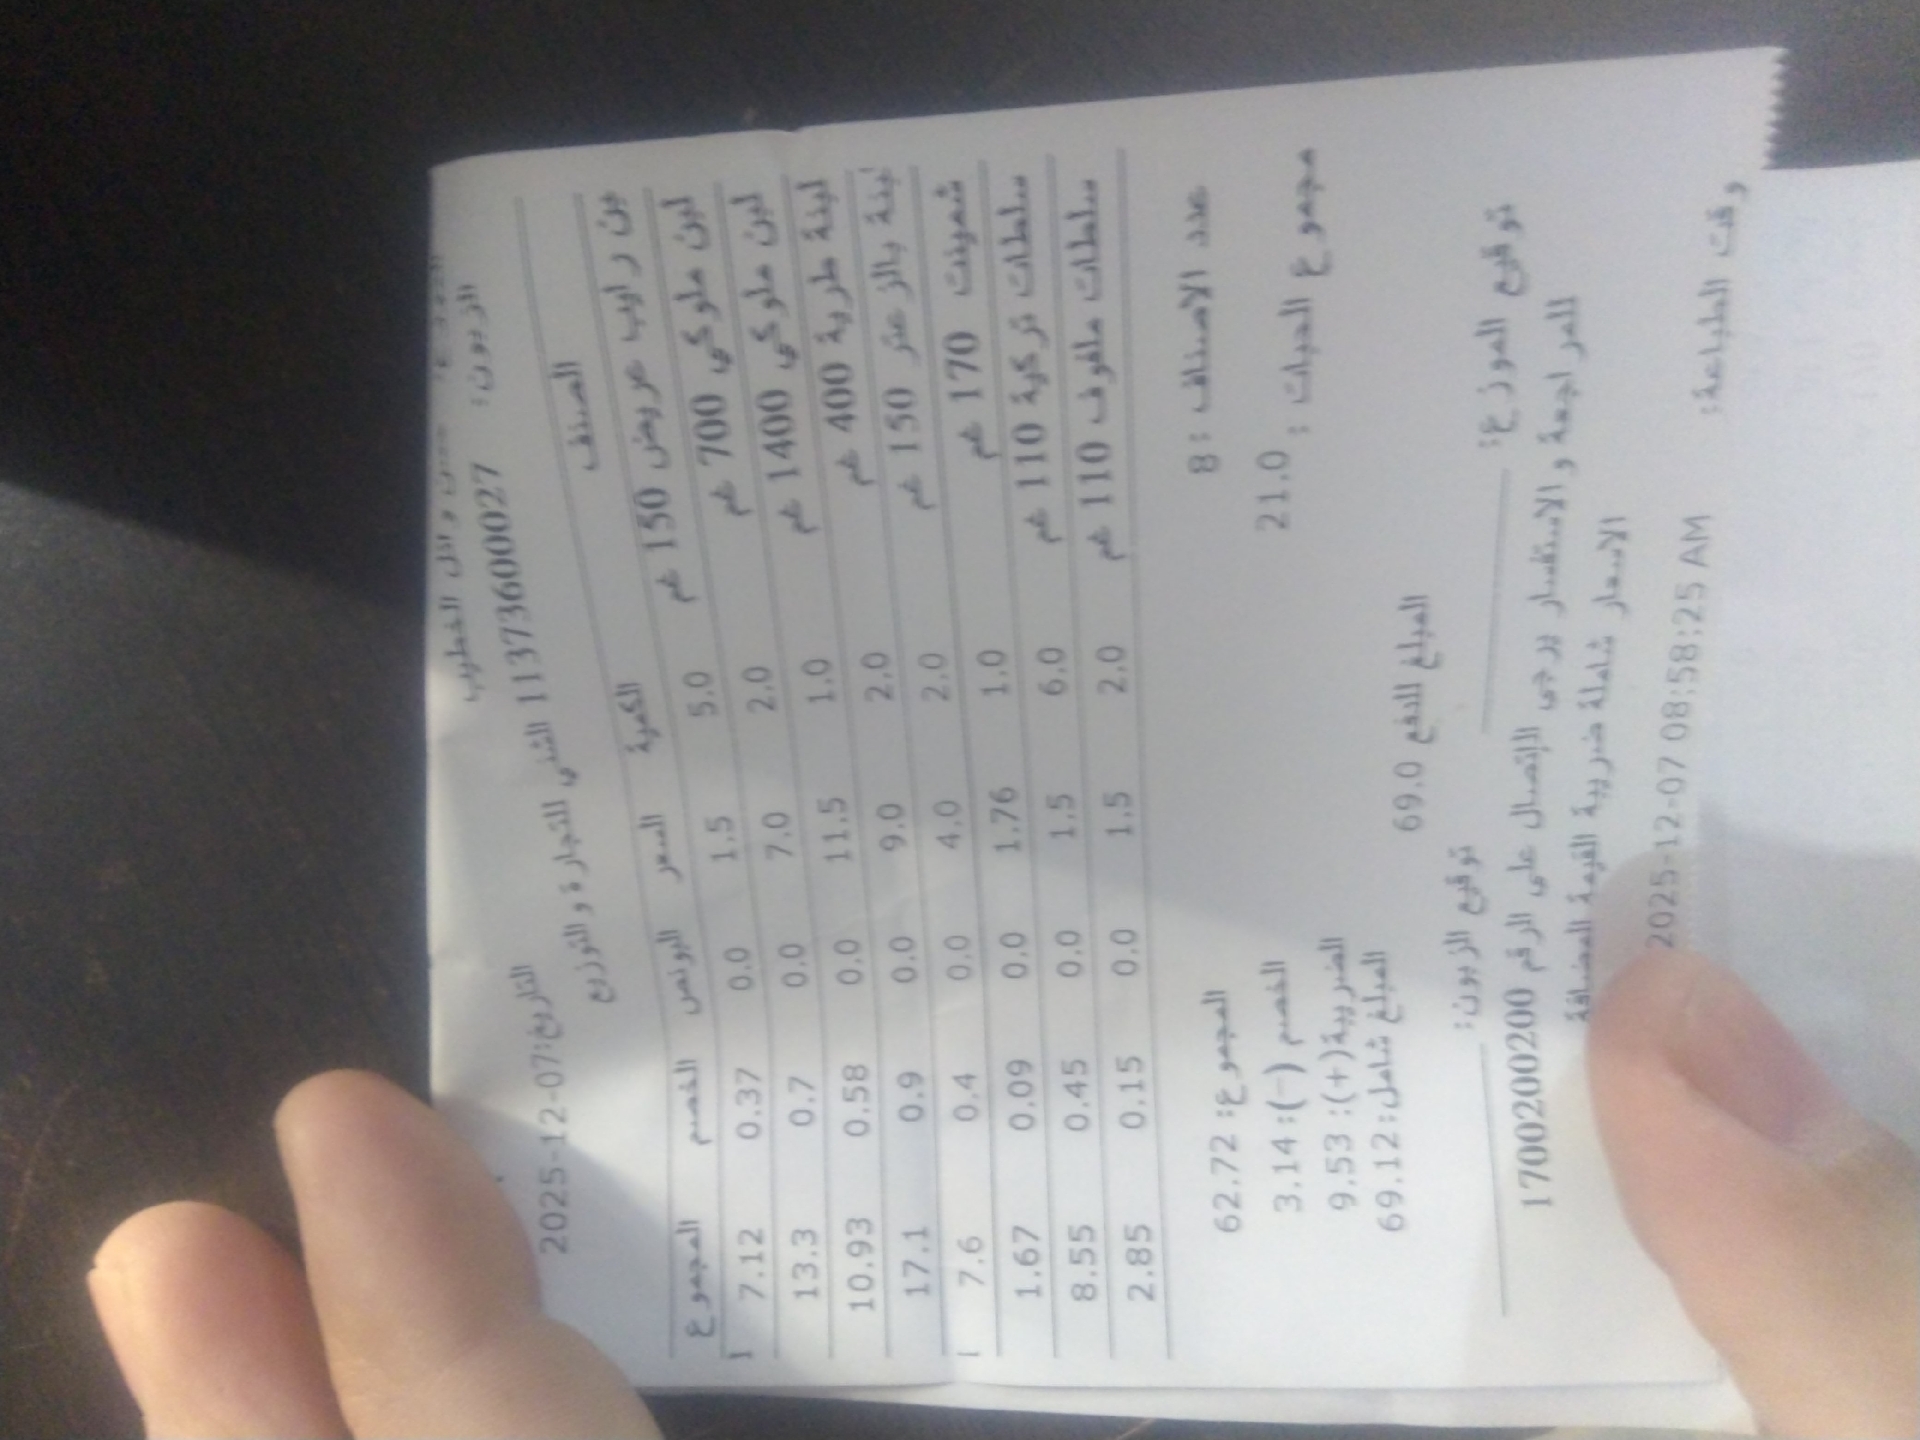 وائل الخطيب
الزبون: 1137360002​7 الشني للتجارة والتوزيع التاريخ:2025-12-07
الصنف الكمية السعر البونص الخصم المجموع
لبن رايب عريض 150 غم 5.0 1.5 0.0 0.37 7.12
لبن ملوكي 700 غم 2.0 7.0 0.0 0.7 13.3
لبن ملوكي 1400 غم 1.0 11.5 0.0 0.58 10.93
لبنة طرية 400 غم 2.0 9.0 0.0 0.9 17.1
لبنة بالزعتر 150 غم 2.0 4.0 0.0 0.4 7.6
شمينت 170 غم 1.0 1.76 0.0 0.09 1.67
سلطات تركية 110 غم 6.0 1.5 0.0 0.45 8.55
سلطات ملفوف 110 غم 2.0 1.5 0.0 0.15 2.85
عدد الاصناف : 8 المجموع: 62.72
مجموع الحبات : 21.0 الخصم (-): 3.14
الضريبة(+): 9.53
المبلغ للدفع 69.0 المبلغ شامل: 69.12
توقيع الموزع: توقيع الزبون:
للمراجعة والاستفسار يرجى الإتصال على الرقم 1700200200
الاسعار شاملة ضريبة القيمة المضافة
وقت الطباعة: 2025-12-07 08:58:25 AM